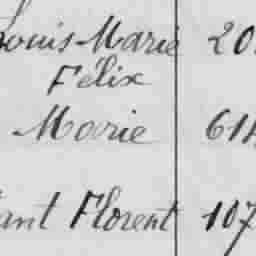 Louis Marie 20
Félix
Marie 614
ant Florent 107